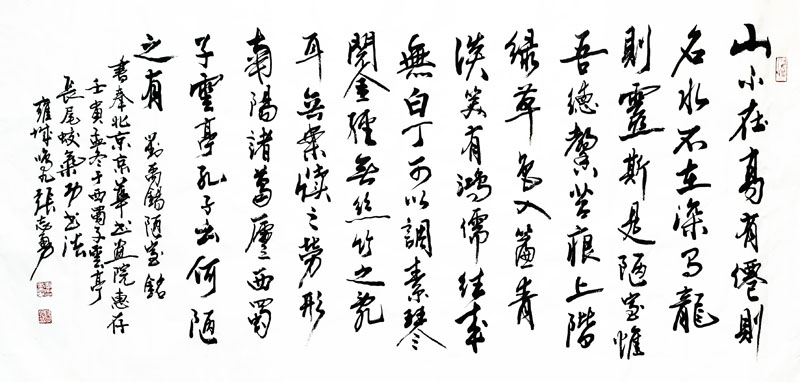 山不在高有僊則
名水不在深有龍
則靈斯是陋室惟
吾德馨苔痕上階
绿草色入簾青
淡笑有鴻儒往来
無白丁可以調素琴
閱金經無絲竹之亂
耳無案牘之勞形
南陽諸葛廬西蜀
子雲亭孔子云何陋
之有 劉禹錫陋室銘
書奉北京京華书画院惠存
壬寅孟冬于西蜀子雲亭
長尾蛟氣功书法
張志勇